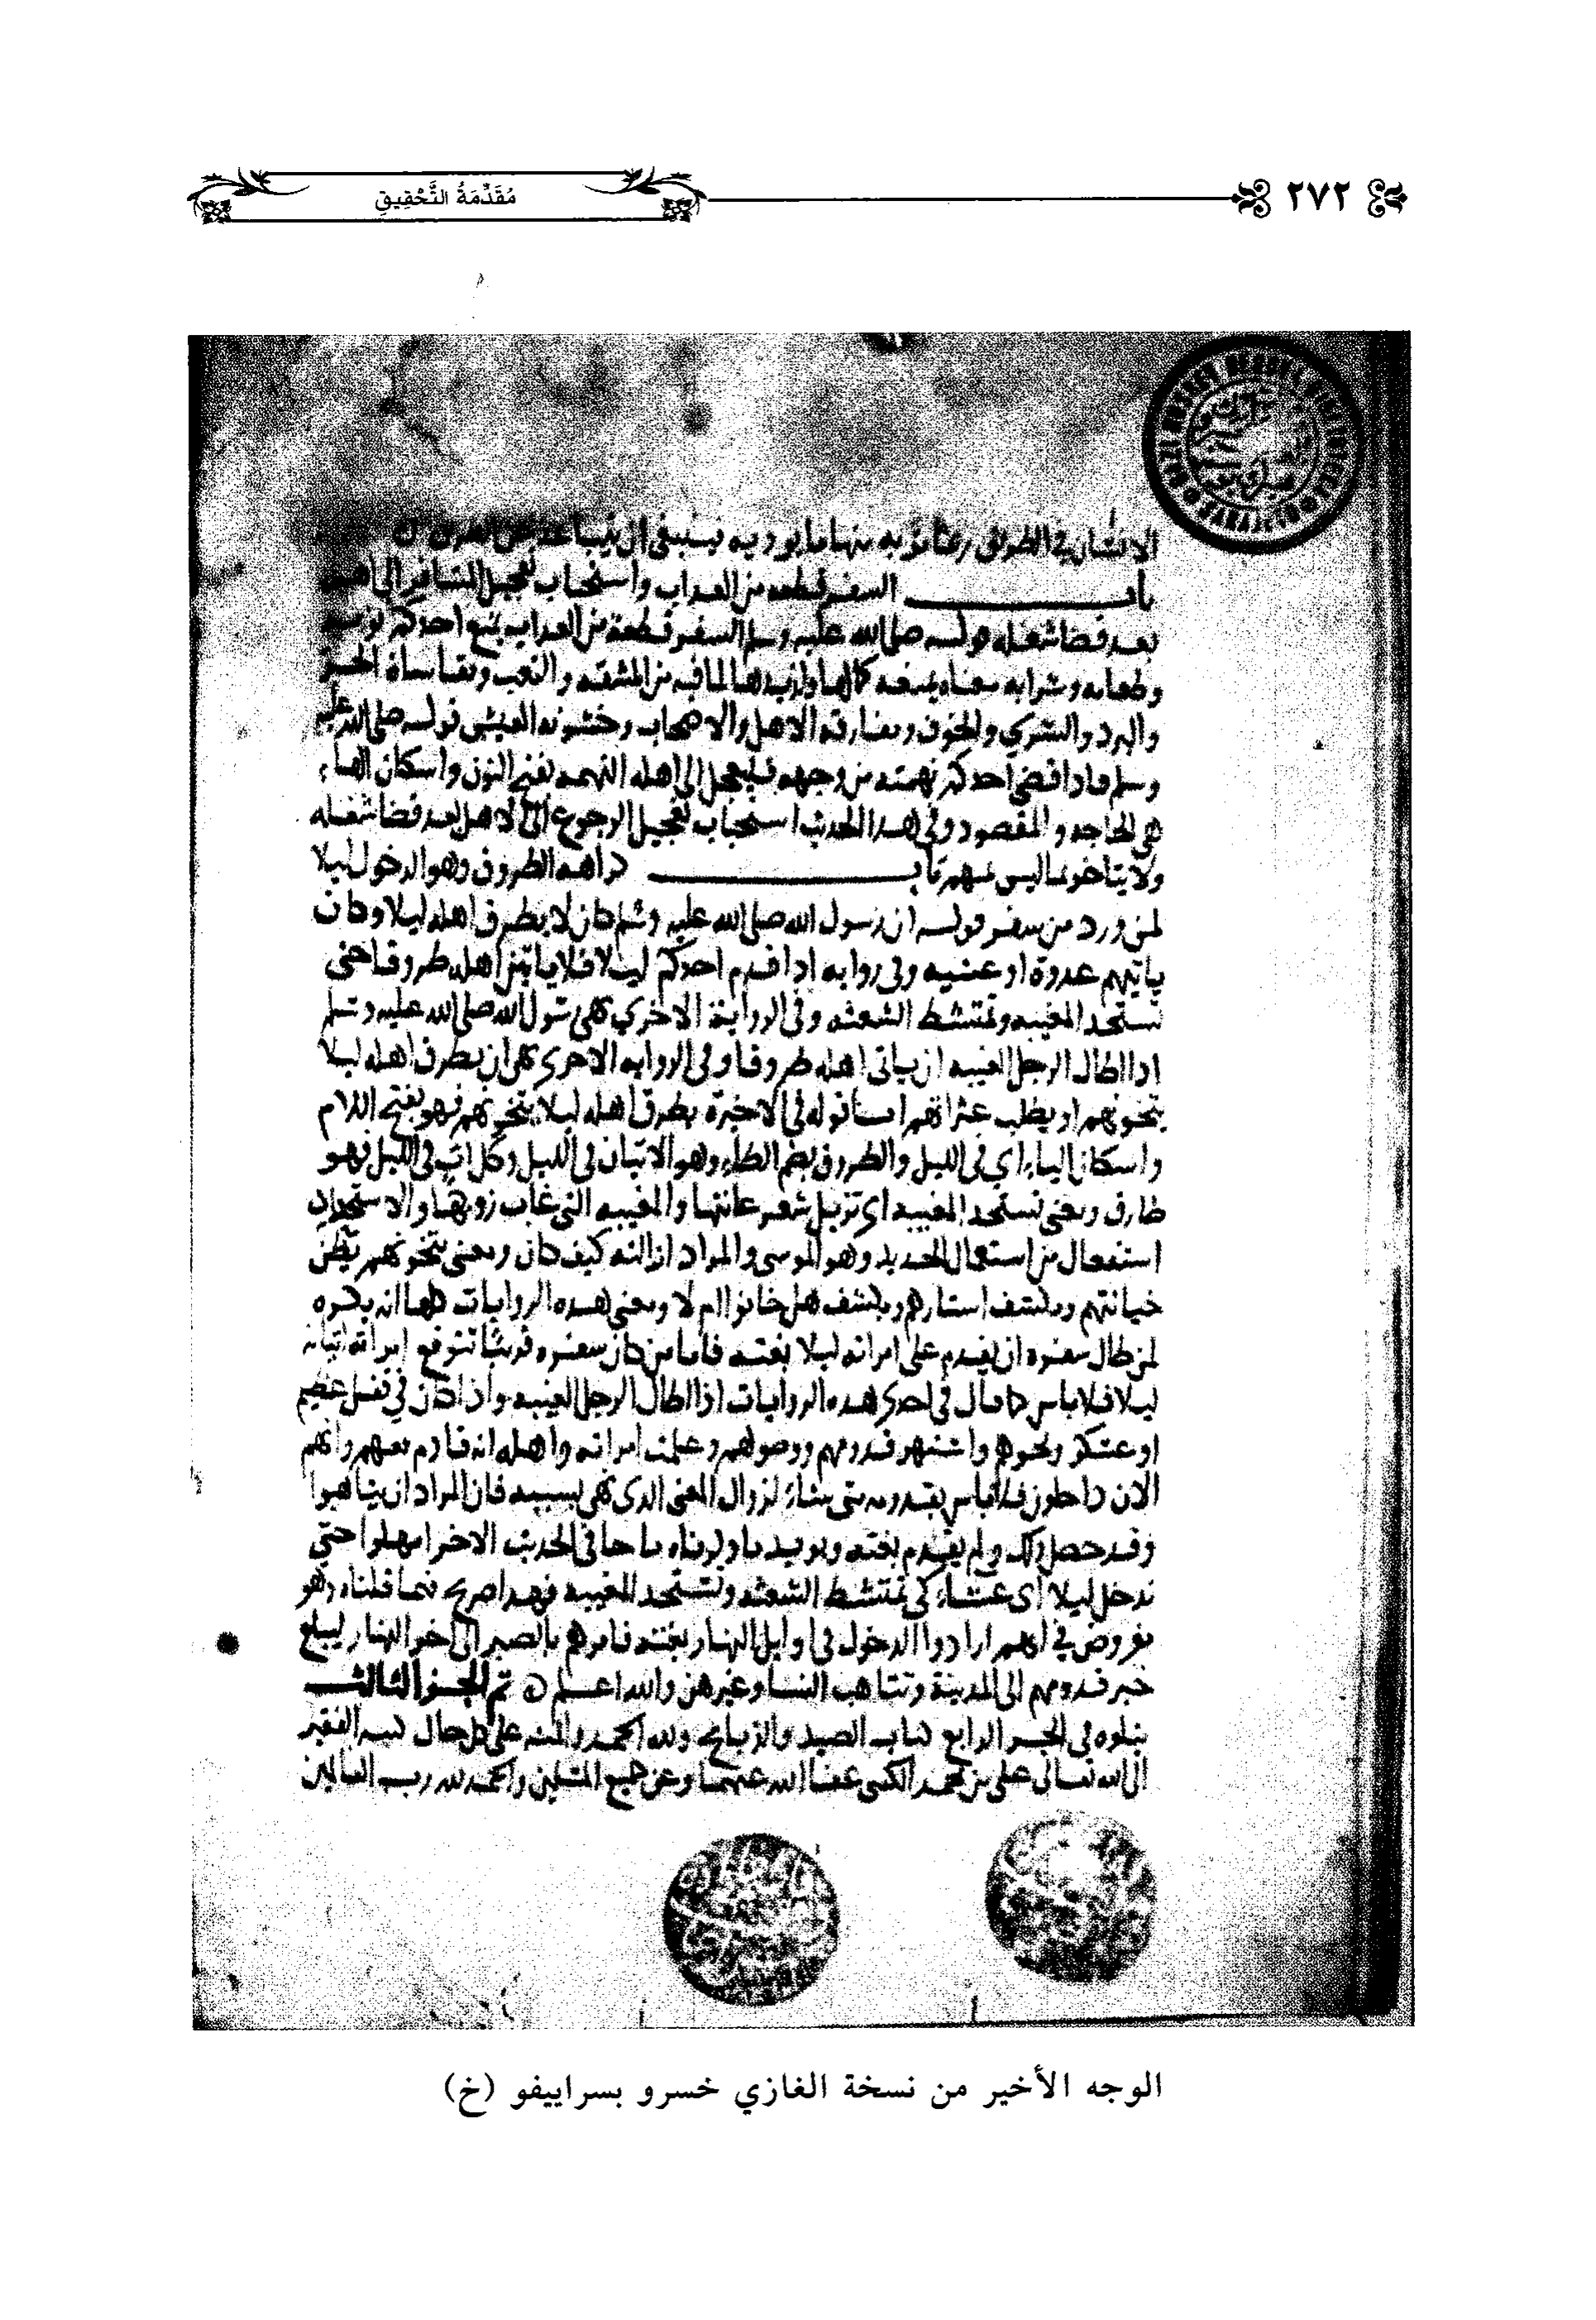 ٢٧٢
مُقَدِّمَةُ التَّحْقِيقِ
الانسان في الطريق منها ما يوذيه فينبغي ان يتباعد عن الطريق
باب السفر قطعه من العذاب واستحباب تعجيل المسافر الى اهله
بعد قضا شغله قوله صلى الله عليه وسلم السفر قطعة من العذاب يمنع احدكم نومه
وطعامه وشرابه معناه يمنعه كمالها ولذيذها لما فيه من المشقه والتعب ومقاساة الحر
والبرد والسرى والخوف ومفارقه الاهل والاصحاب وخشونه العيش قوله صلى الله عليه
وسلم فاذا قضى احدكم نهمته من وجهه فليعجل الى اهله النهمه بفتح النون واسكان الهاء
هي الحاجه والمقصود وفي هذا الحديث استحباب تعجيل الرجوع الى الاهل بعد قضا شغله
ولا يتاخر بما ليس بمهم باب كراهه الطروق وهو الدخول ليلا
لمن ورد من سفر قوله ان رسول الله صلى الله عليه وسلم كان لا يطرق اهله ليلا وكان
ياتيهم غدوة او عشيه وفي روايه اذا قدم احدكم ليلا فلا ياتين اهله طروقا حتى
تستحد المغيبه وتمتشط الشعثه وفي الروايه الاخرى نهى رسول الله صلى الله عليه وسلم
اذا اطال الرجل الغيبه ان ياتى اهله طروقا وفي الروايه الاخرى نهى ان يطرق اهله ليلا
يتخونهم او يطلب عثراتهم اما قوله في الاخيرة يطرق اهله ليلا يتخونهم فهو بفتح اللام
واسكان الياء اي في الليل والطروق بضم الطاء وهو الاتيان في الليل وكل ات في الليل فهو
طارق ومعنى تستحد المغيبه اي تزيل شعر عانتها والمغيبه التي غاب زوجها والاستحداد
استفعال من استعمال الحديد وهو الموسى والمراد ازالته كيف كان ومعنى يتخونهم يظن
خيانتهم ويكشف استارهم ويكشف هل خانوا ام لا ومعنى هذه الروايات كلها انه يكره
لمن طال سفره ان يقدم على امراته ليلا بغته فاما من كان سفره قريبا تتوقع امراته اتيانه
ليلا فلا باس كما قال في احدى هذه الروايات اذا اطال الرجل الغيبه واذا كان في قفل عظيم
او عسكر ونحوهم واشتهر قدومهم ووصولهم وعلمت امراته واهله انه قادم معهم وانهم
الان داخلون فلا باس بقدومه متى شاء لزوال المعنى الذي نهي بسببه فان المراد ان يتاهبوا
وقد حصل ذلك ولم يقدم بغته ويويد ما ذكرناه ما جا في الحديث الاخر امهلوا حتى
ندخل ليلا اى عشاء كي تمتشط الشعثه وتستحد المغيبه فهذا صريح فيما قلناه وهو
مفروض في انهم ارادوا الدخول في اوايل النهار بغته فامرهم بالصبر الى اخر النهار ليبلغ
خبر قدومهم الى المدينة وتتاهب النسا وغيرهن والله اعلم تم الجزو الثالث
يتلوه في الجزو الرابع كتاب الصيد والذبايح ولله الحمد والمنه على كل حال كتبه الفقير
الى الله تعالى على بن محمد عفا الله عنهما وعن جميع المسلمين والحمد لله رب العالمين
الوجه الأخير من نسخة الغازي خسرو بسراييفو (خ)